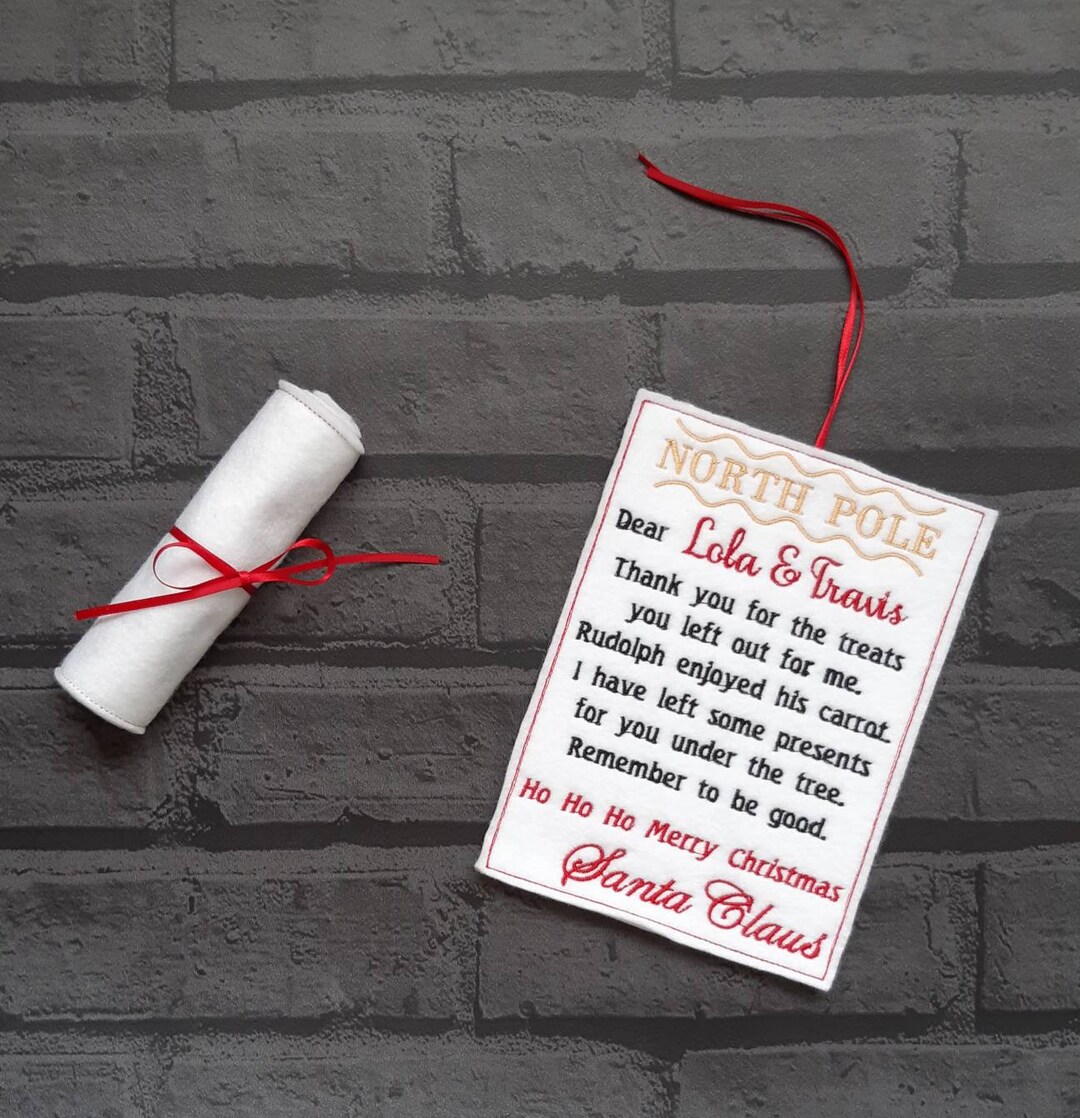 NORTH POLE
Dear Lola & Travis
Thank you for the treats
you left out for me.
Rudolph enjoyed his carrot.
I have left some presents
for you under the tree.
Remember to be good.
Ho Ho Ho Merry Christmas
Santa Claus